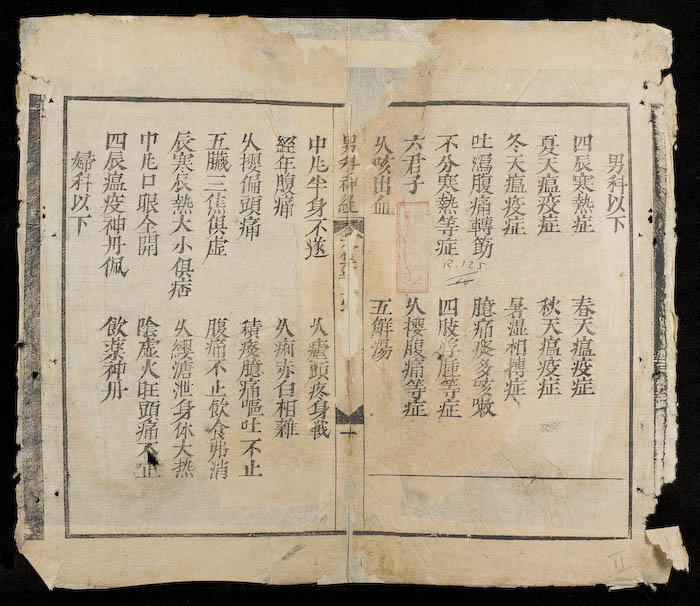 男科以下
四辰寒熱症 春天瘟疫症
夏天瘟疫症 秋天瘟疫症
冬天瘟疫症 暑湿相搏症
吐瀉腹痛轉筋 臆痛痰多咳嗽
不分寒熱等症 四肢浮腫等症
R.125
六君子 久攖腹痛等症
久咳出血 五鮮湯
男科神經
中凡半身不遂 久瘧頭疼身戰
經年腹痛 久痢赤白相雜
久攖偏頭痛 積痰臆痛嘔吐不止
五臟三焦俱虛 腹痛不止飲食弗消
辰寒辰熱大小俱痞 久纓溏泄身体大热
中凡口眼仝開 陰虛火旺頭痛不止
四辰瘟疫神丹佩 飲薬神丹
婦科以下
II